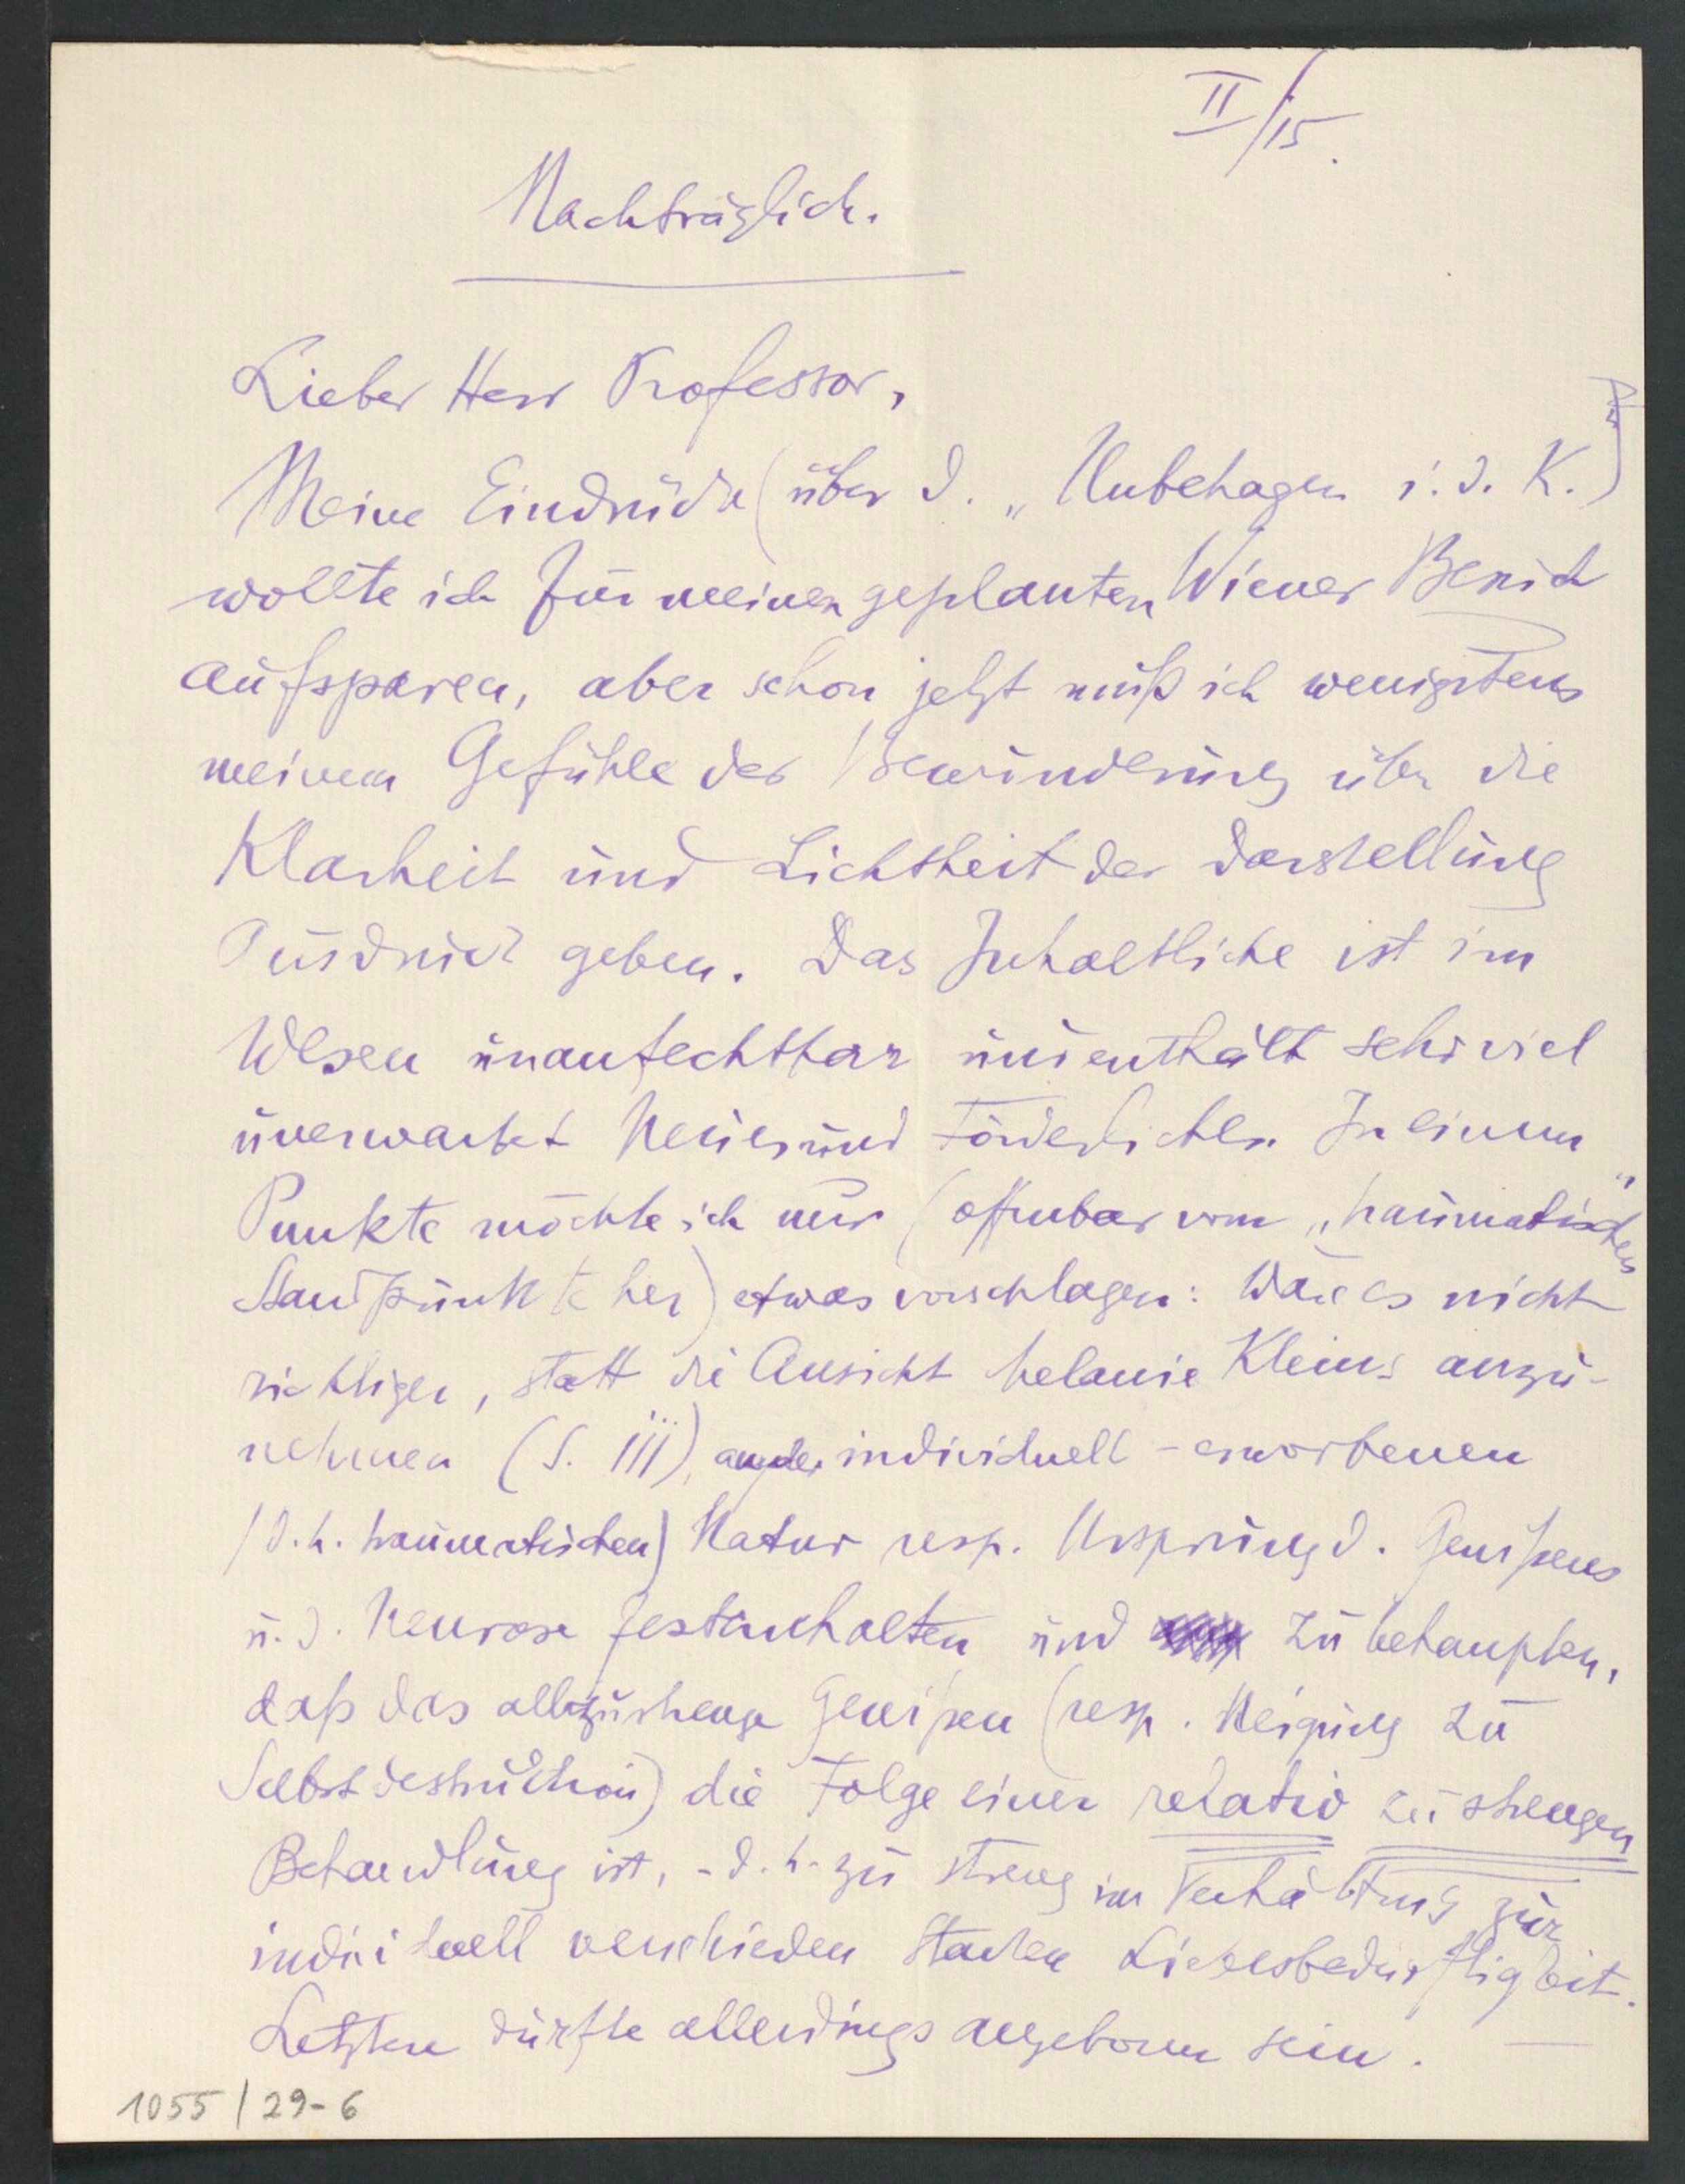 II/15.
Nachträglich.
Lieber Herr Professor,
Meine Eindrücke (über d. „Unbehagen i. d. K.")
wollte ich für meinen geplanten Wiener Besuch
aufsparen, aber schon jetzt muß ich wenigstens
meinem Gefühle der Bewunderung über die
Klarheit und Lichtheit der Darstellung
Ausdruck geben. Das Inhaltliche ist im
Wesen unanfechtbar und enthält sehr viel
unerwartet Neues und Förderliches. In einem
Punkte möchte ich nur (offenbar vom „traumatischen"
Standpunkte her) etwas vorschlagen: Wäre es nicht
richtiger, statt die Ansicht Melanie Kleins anzu-
nehmen (S. 111), an der individuell-erworbenen
(d. h. traumatischen) Natur resp. Ursprung d. Gewissens
u. d. Neurose festzuhalten und zu behaupten,
daß das allzustrenge Gewissen (resp. Neigung zu
Selbstdestruction) die Folge einer relativ zu strengen
Behandlung ist, - d. h. zu streng im Verhältnis zur
individuell verschieden starken Liebesbedürftigkeit.
Letztere dürfte allerdings angeboren sein. —
1055/29-6